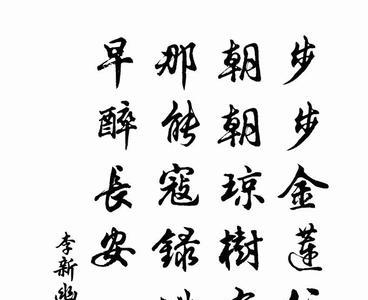 步步金蓮
朝朝瓊樹
那能寇録
早醉長安
李新